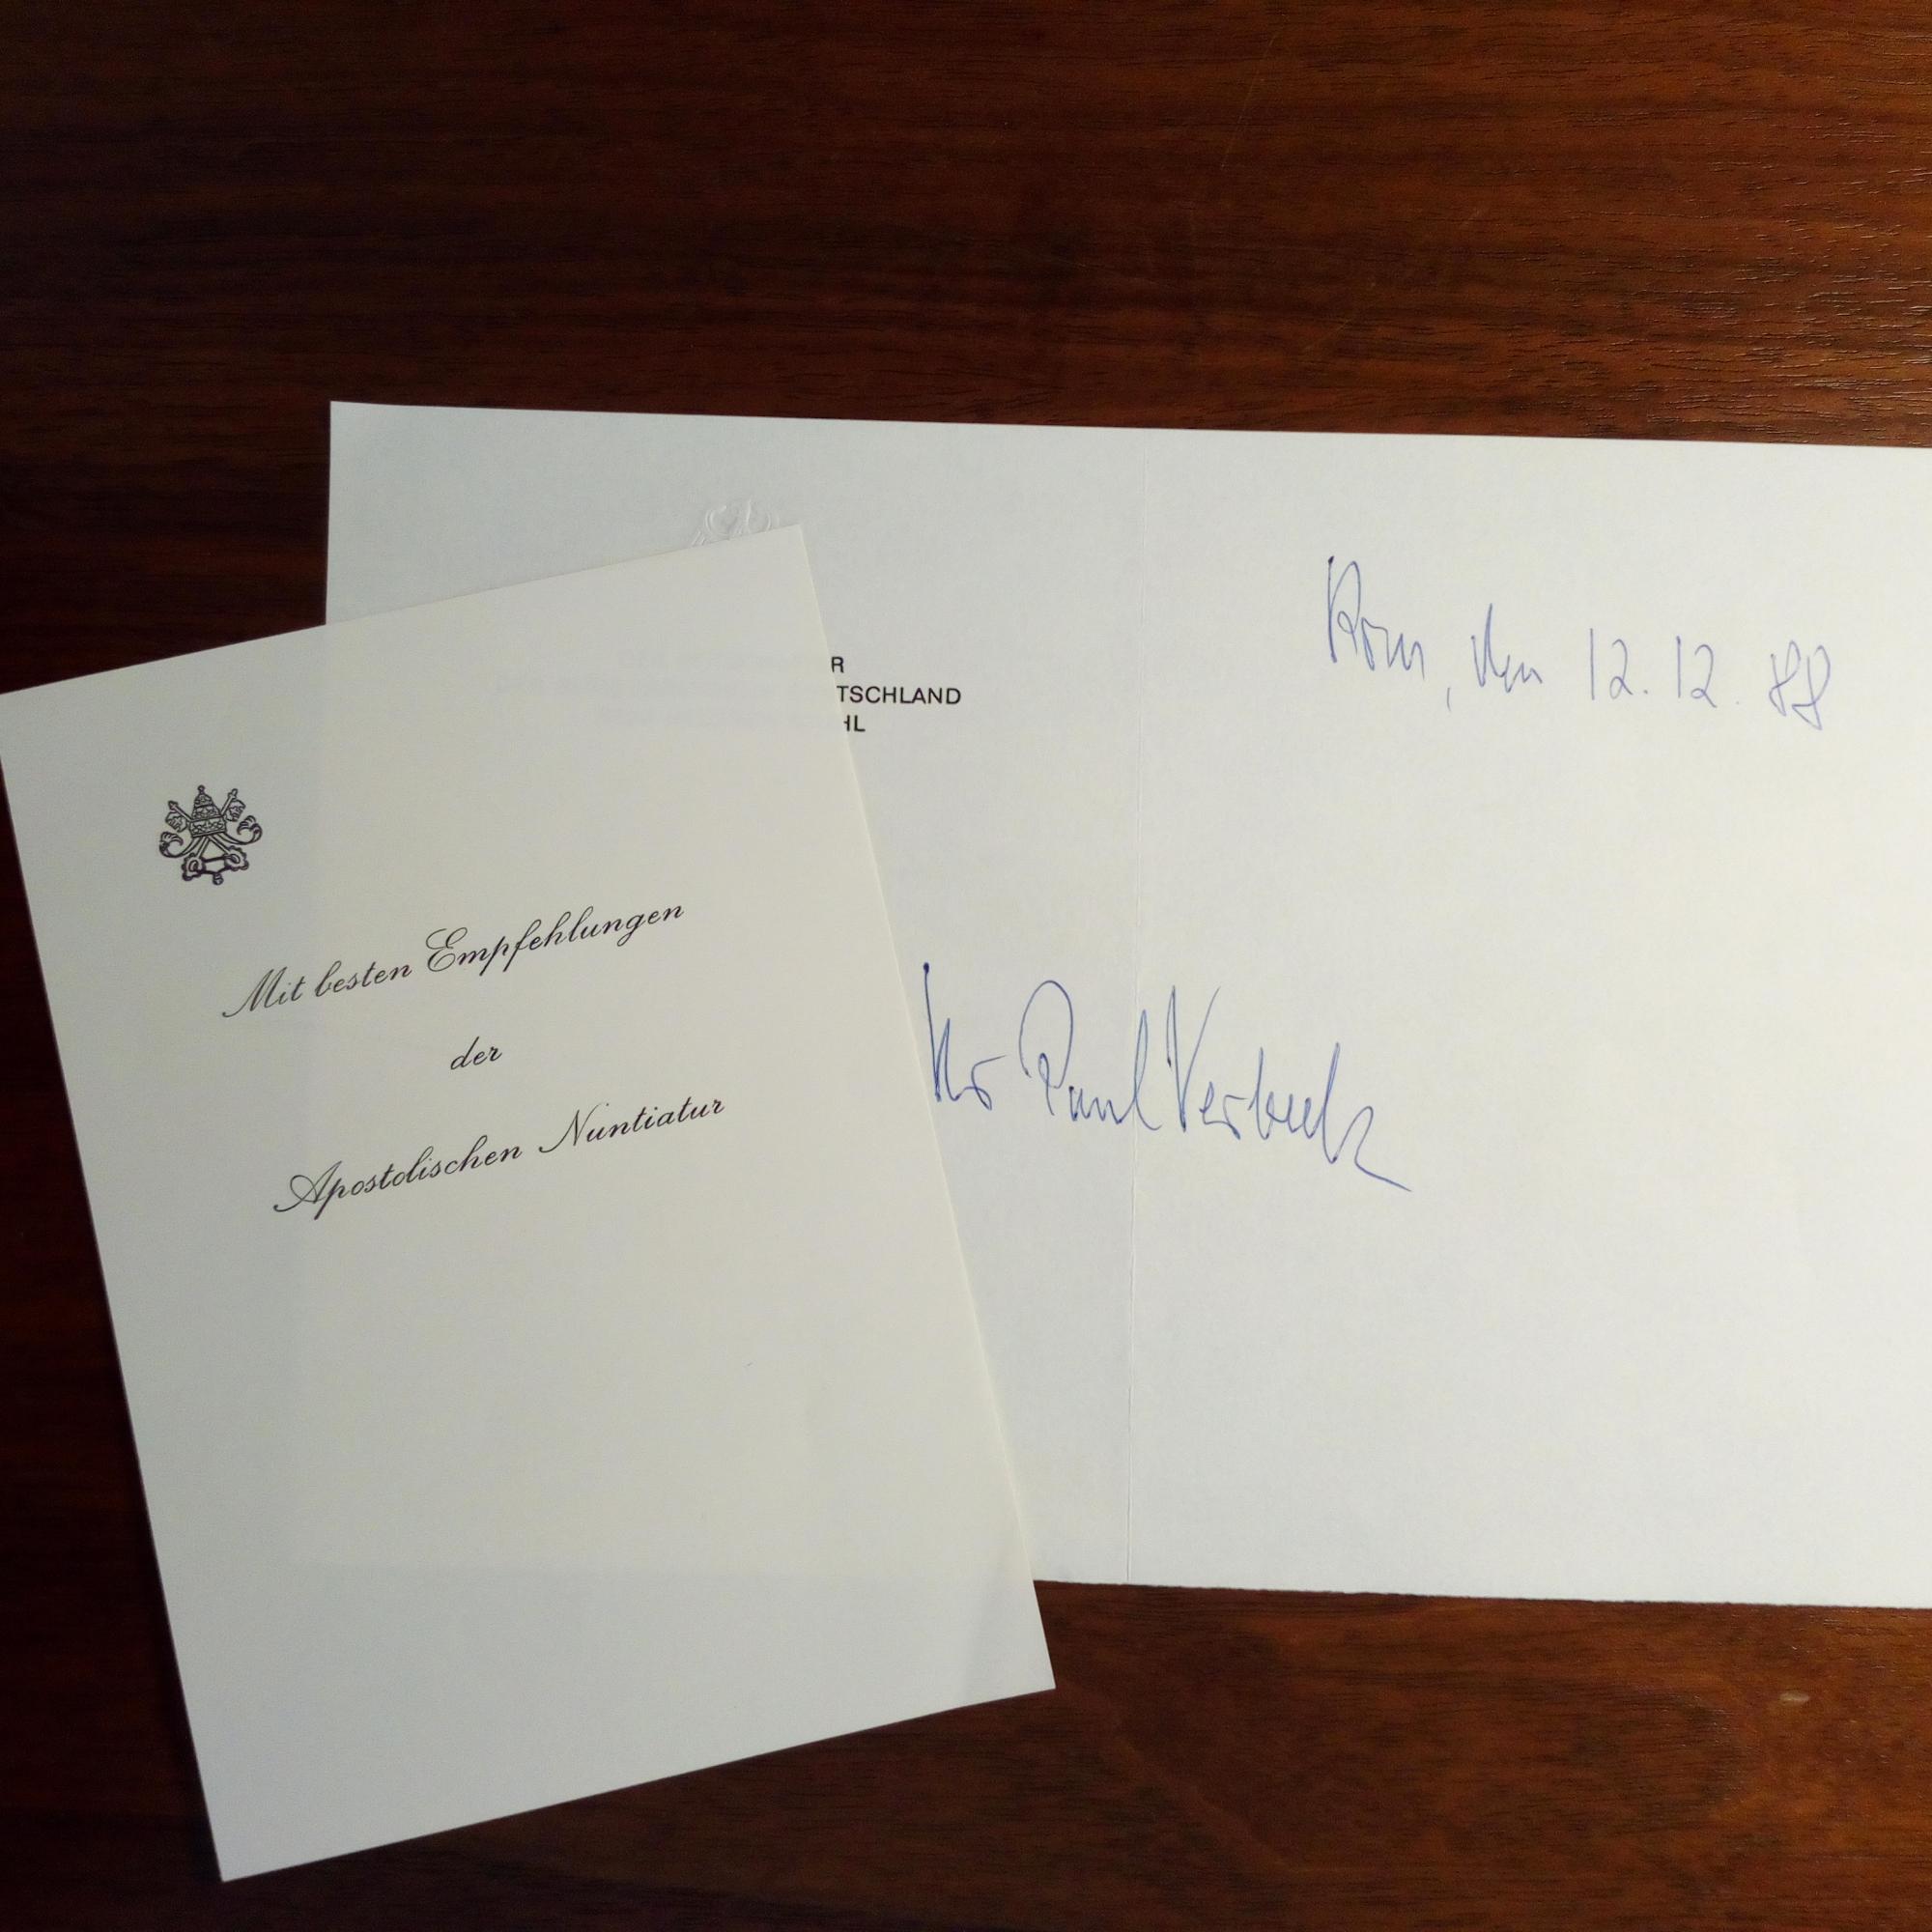 Mit besten Empfehlungen
der
Apostolischen Nuntiatur
R
TSCHLAND
HL
Rom, den 12.12.88
Ihr Paul Verbeek